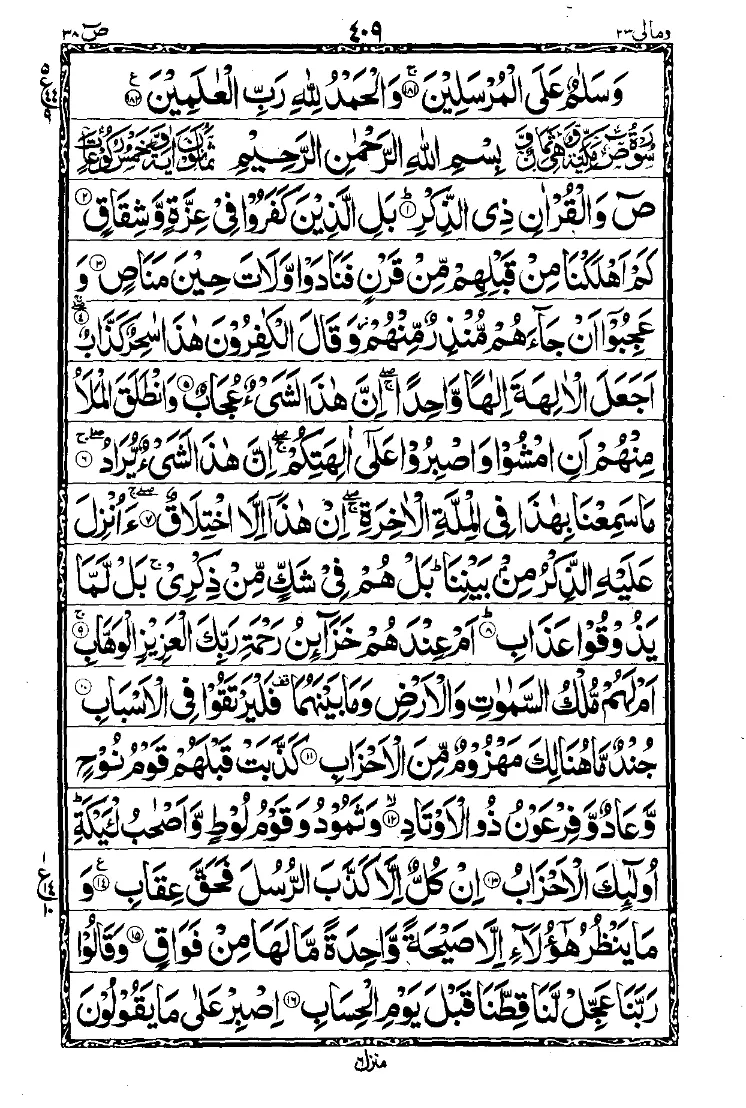 ومالی ۲۳
۴۰۹
صٓ ۳۸
وَسَلٰمٌ عَلَى الْمُرْسَلِيْنَ ۚ﴿۱۸۱﴾ وَالْحَمْدُ لِلّٰهِ رَبِّ الْعٰلَمِيْنَ ﴿۱۸۲﴾ ع
سُوْرَةُ صٓ مَكِّيَّةٌ وَّهِىَ ثَمَانٌ وَّ بِسْمِ اللّٰهِ الرَّحْمٰنِ الرَّحِيْمِ ثَمَانُوْنَ اٰيَةً وَّخَمْسُ رُكُوْعَاتٍ
صٓ وَالْقُرْاٰنِ ذِى الذِّكْرِ ؕ﴿۱﴾ بَلِ الَّذِيْنَ كَفَرُوْا فِىْ عِزَّةٍ وَّشِقَاقٍ ﴿۲﴾
كَمْ اَهْلَكْنَا مِنْ قَبْلِهِمْ مِّنْ قَرْنٍ فَنَادَوْا وَّلَاتَ حِيْنَ مَنَاصٍ ﴿۳﴾ وَ
عَجِبُوْۤا اَنْ جَآءَهُمْ مُّنْذِرٌ مِّنْهُمْ وَقَالَ الْكٰفِرُوْنَ هٰذَا سٰحِرٌ كَذَّابٌ ۖۚ﴿۴﴾
اَجَعَلَ الْاٰلِهَةَ اِلٰهًا وَّاحِدًا ۖۚ اِنَّ هٰذَا لَشَىْءٌ عُجَابٌ ﴿۵﴾ وَانْطَلَقَ الْمَلَاُ
مِنْهُمْ اَنِ امْشُوْا وَاصْبِرُوْا عَلٰٓى اٰلِهَتِكُمْ ۖۚ اِنَّ هٰذَا لَشَىْءٌ يُّرَادُ ۖۚ﴿۶﴾
مَا سَمِعْنَا بِهٰذَا فِى الْمِلَّةِ الْاٰخِرَةِ ۖۚ اِنْ هٰذَاۤ اِلَّا اخْتِلَاقٌ ۖۚ﴿۷﴾ ءَاُنْزِلَ
عَلَيْهِ الذِّكْرُ مِنْۢ بَيْنِنَا ؕ بَلْ هُمْ فِىْ شَكٍّ مِّنْ ذِكْرِىْ ۚ بَلْ لَّمَّا
يَذُوْقُوْا عَذَابِ ؕ﴿۸﴾ اَمْ عِنْدَهُمْ خَزَآئِنُ رَحْمَةِ رَبِّكَ الْعَزِيْزِ الْوَهَّابِ ۚ﴿۹﴾
اَمْ لَهُمْ مُّلْكُ السَّمٰوٰتِ وَالْاَرْضِ وَمَا بَيْنَهُمَا قف فَلْيَرْتَقُوْا فِى الْاَسْبَابِ ﴿۱۰﴾
جُنْدٌ مَّا هُنَالِكَ مَهْزُوْمٌ مِّنَ الْاَحْزَابِ ﴿۱۱﴾ كَذَّبَتْ قَبْلَهُمْ قَوْمُ نُوْحٍ
وَّعَادٌ وَّفِرْعَوْنُ ذُو الْاَوْتَادِ ۙ﴿۱۲﴾ وَثَمُوْدُ وَقَوْمُ لُوْطٍ وَّاَصْحٰبُ لْئَيْكَةِ ؕ
اُولٰٓئِكَ الْاَحْزَابُ ﴿۱۳﴾ اِنْ كُلٌّ اِلَّا كَذَّبَ الرُّسُلَ فَحَقَّ عِقَابِ ﴿۱۴﴾ ع وَ
مَا يَنْظُرُ هٰٓؤُلَآءِ اِلَّا صَيْحَةً وَّاحِدَةً مَّا لَهَا مِنْ فَوَاقٍ ﴿۱۵﴾ وَقَالُوْا
رَبَّنَا عَجِّلْ لَّنَا قِطَّنَا قَبْلَ يَوْمِ الْحِسَابِ ﴿۱۶﴾ اِصْبِرْ عَلٰى مَا يَقُوْلُوْنَ
منزل ۶